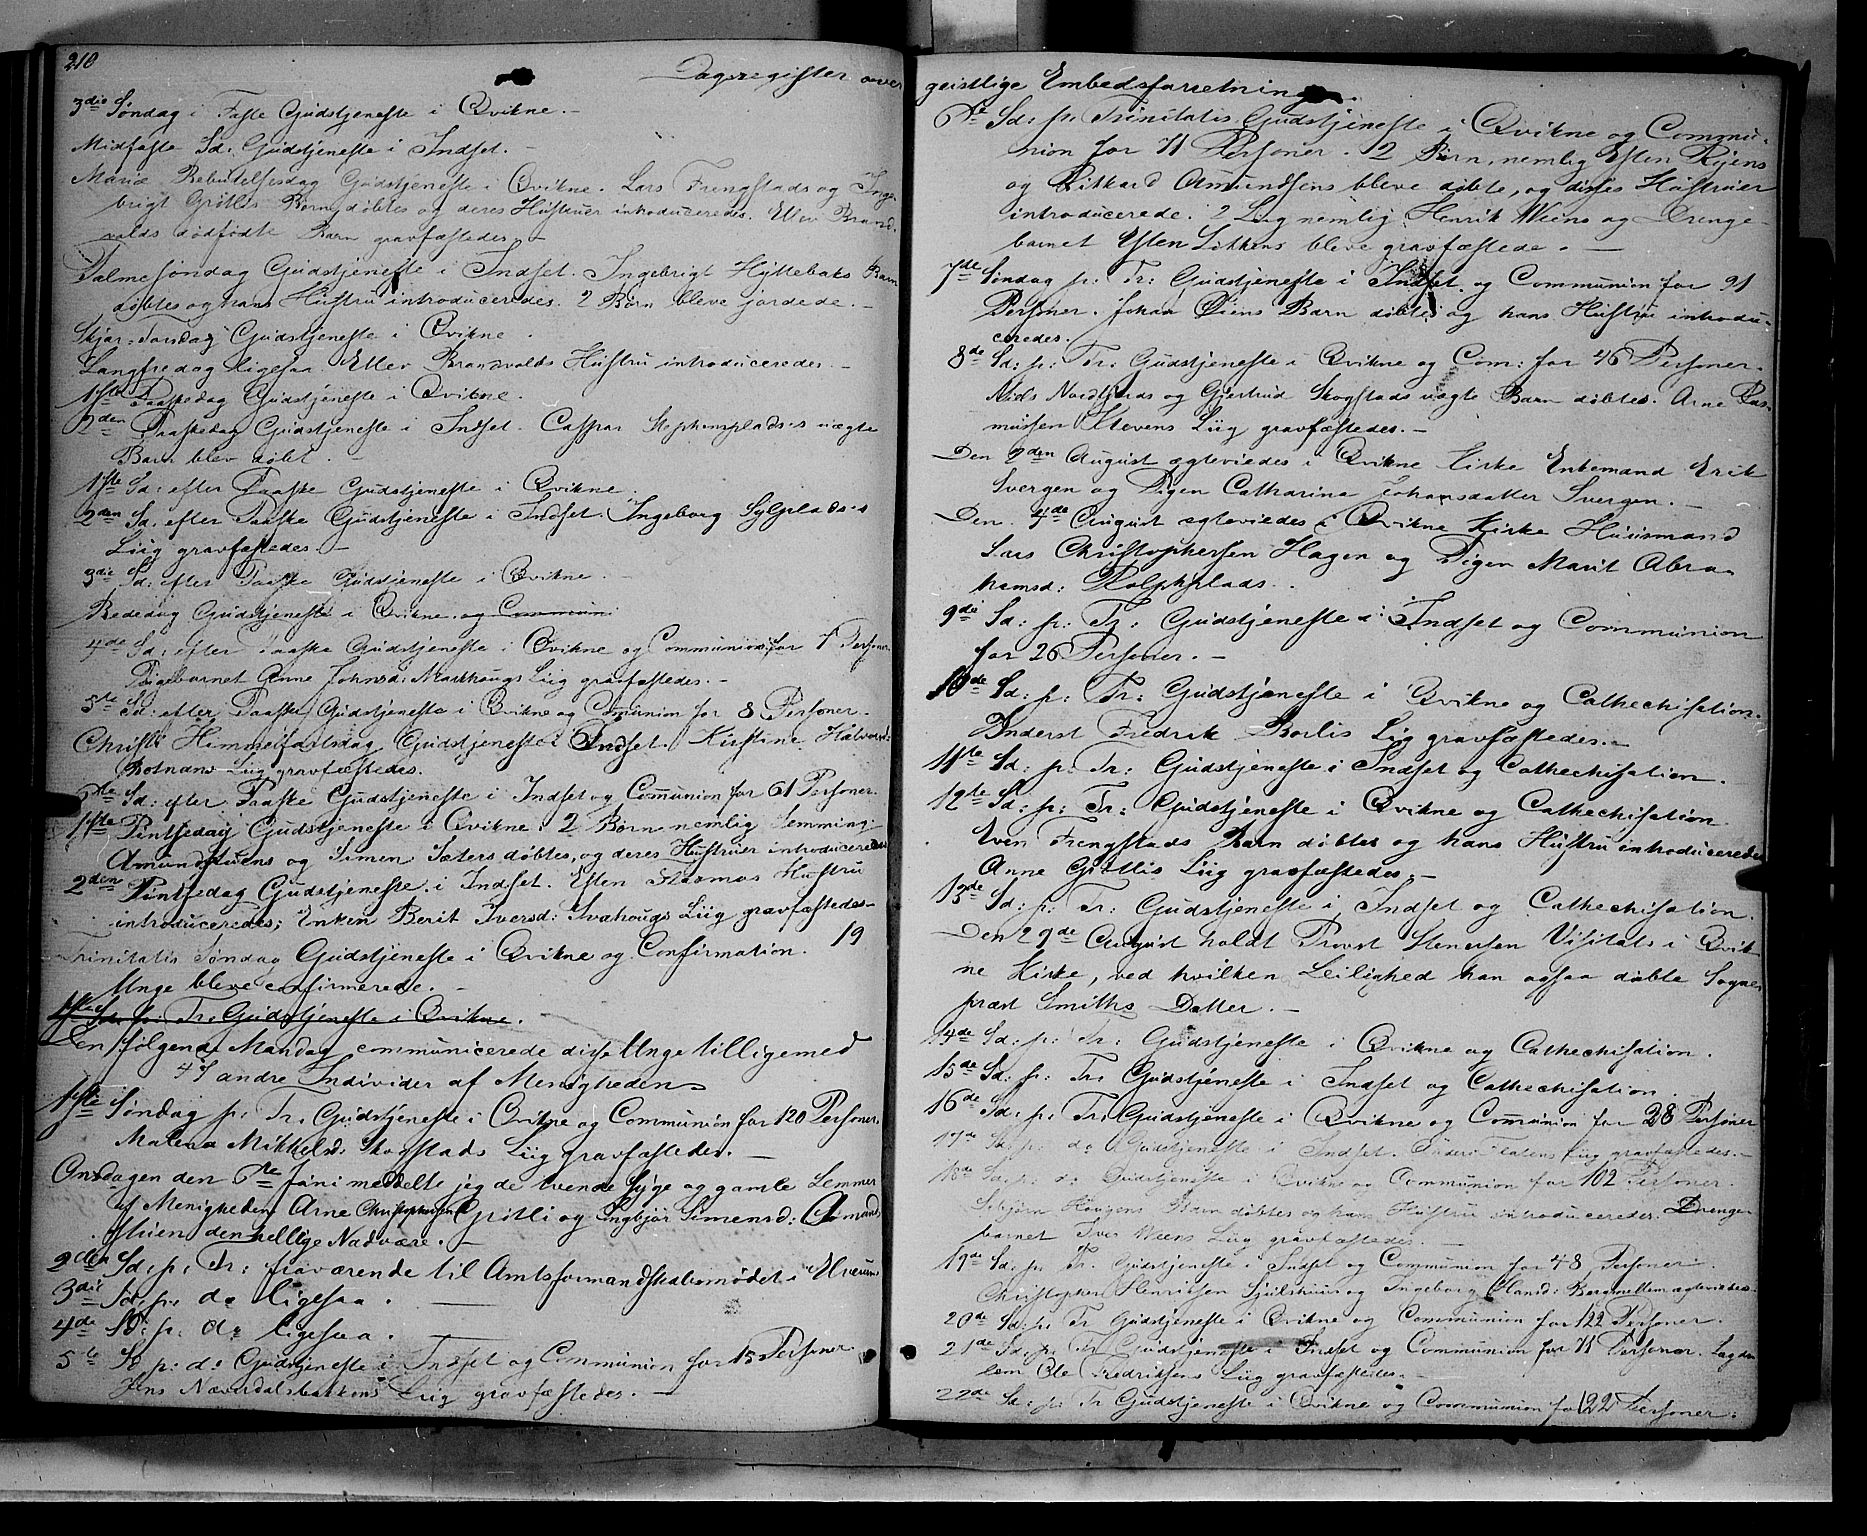 210
Dagsregister over
3die Søndag i Faste Gudstjeneste i Qvikne. -
Midfaste Sd: Gudstjeneste i Indset. -
Mariæ Bebudelsesdag Gudstjeneste i Qvikne. Lars Frengstads og Inge-
brigt Gritlis Børn døbtes og deres Hustruer introduceredes. Ellev Brand-
valds dødfødte Barn gravfæstedes. -
Palmesøndag Gudstjeneste i Indset. Ingebrigt Hyttebaks Barn
døbtes og hans Hustru introduceredes. 2 Børn bleve jordede. -
Skjær-Torsdag Gudstjeneste i Qvikne.
Langfredag ligesaa. Ellev Brandvalds Hustru introduceredes. -
1ste Paaskedag Gudstjeneste i Qvikne.
2den Paaskedag Gudstjeneste i Indset. Caspar Stephensplads's uægte
Barn blev døbt. -
1ste Sd: efter Paaske Gudstjeneste i Qvikne.
2den Sd: efter Paaske Gudstjeneste i Indset. Ingeborg Sylplads's
Liig gravfæstedes. -
3die Sd: efter Paaske Gudstjeneste i Qvikne. -
Bededag Gudstjeneste i Qvikne og Communion.
4de Sd: efter Paaske Gudstjeneste i Qvikne og Communion for 7 Personer.
Pigebarnet Anne Johnsd: Markhaugs Liig gravfæstedes. -
5te Sd: efter Paaske Gudstjeneste i Qvikne og Communion for 8 Personer.
Christi Himmelfartsdag Gudstjeneste i Indset. Kirstine Halvorsd:
Botnans Liig gravfæstedes.
6te Sd: efter Paaske Gudstjeneste i Indset og Communion for 61 Personer.
1ste Pintsedag Gudstjeneste i Qvikne. 2 Børn nemlig Hemming
Amundstuens og Simen Sæters døbtes, og deres Hustruer introduceredes
2den Pintsedag Gudstjeneste i Indset. Esten Hustru
introduceredes; Enken Berit Iversd: Svahougs Liig gravfæstedes.
Trinitatis Søndag Gudstjeneste i Qvikne og Confirmation. 19
Unge bleve confirmerede. -
1ste Sd. p. Tr. Gudstjeneste i Qvikne.
Den følgende Mandag communicerede disse Unge tilligemed
47 andre Individer af Menigheden.
1ste Søndag p: Tr: Gudstjeneste i Qvikne og Communion for 120 Personer.
Malena Mikkelsd: Skogstads Liig gravfæstedes. -
Onsdagen den 6te Juni meddelte jeg de tvende syge og gamle Lemmer
af Menigheden Arne Christophersen Gritli og Ingbjør Simensd: Amund-
stuen den hellige Nadvere. -
2den Sd: p: Tr: fraværende til Amtsformandskabsmødet i Elverum
3die Sd: p: do ligesaa. -
4de Sd: p: do ligesaa. -
5te Sd p: do Gudstjeneste i Indset og Communion for 15 Personer.
Jens Næverdalsbakkens Liig gravfæstedes. -
geistlige Embedsforretninger.
6te Sd: p: Trinitatis Gudstjeneste i Qvikne og Commu-
nion for 71 Personer. 2 Børn, nemlig Esten Riens
og Rikkard Amundsens bleve døbte, og disses Hustruer
introducerede. 2 Liig nemlig Henrik Weens og Drenge-
barnet Esten Likkens bleve gravfæstede. -
7de Søndag p: Tr: Gudstjeneste i Indset og Communion for 91
Personer. Johan Øiens Barn døbtes og hans Hustru introdu-
ceredes.
8de Sd: p: Tr: Gudstjeneste i Qvikne og Com: for 46 Personer.
Nils Nordfjords og Gjertrud Skogstads uægte Barn døbtes. Arne Ras-
mussen Stevens Liig gravfæstedes. -
Den 2den August ægteviedes i Qvikne Kirke Enkemand Erik
Svergen og Pigen Catharina Johansdatter Svergen. -
Den 4de August ægteviedes i Qvikne Kirke Huusmand
Lars Christophersen Hagen og Pigen Marit Abra-
hamsd: Rolphplads. -
9de Sd: p: Tr: Gudstjeneste i Indset og Communion
for 26 Personer. -
10de Sd: p: Tr: Gudstjeneste i Qvikne og Cathechisation.
Inderst Fredrik Borlis Liig gravfæstedes. -
11te Sd: p: Tr: Gudstjeneste i Indset og Cathechisation.
12te Sd: p: Tr: Gudstjeneste i Qvikne og Cathechisation.
Even Frengstads Barn døbtes og hans Hustru introduceredes
Anne Gritlis Liig gravfæstedes. -
13de Sd: p: Tr: Gudstjeneste i Indset og Cathechisation.
Den 29de August holdt Provst Stenersen Visitats i Qvik-
ne Kirke, ved hvilken Leilighed han ogsaa døbte Sogne-
præst Smiths Datter. -
14de Sd: p: Tr: Gudstjeneste i Qvikne og Cathechisation.
15de Sd: p: Tr: Gudstjeneste i Indset og Cathechisation.
16de Sd: p: Tr: Gudstjeneste i Qvikne og Communion for 28 Personer
17de Sd: p: do Gudstjeneste i Indset. Anders Flatens Liig gravfæstedes. -
18de Sd: p: do Gudstjeneste i Qvikne og Communion for 102 Personer.
Sebjørn Hougens Barn døbtes og hans Hustru introduceredes. Drenge-
barnet Iver Weens Liig gravfæstedes. -
19de Sd: p: Tr: Gudstjeneste i Indset og Communion for 48 Personer.
Christopher Henriksen Sjulshuus og Ingeborg Hansd: Bergmellem ægteviedes.
20de Sd: p: Tr Gudstjeneste i Qvikne og Communion for 122 Personer.
21de Sd: p: Tr Gudstjeneste i Indset og Communion for 71 Personer. Lægds-
lem Ole Fredriksens Liig gravfæstedes. -
22de Sd: p: Tr Gudstjeneste i Qvikne og Communion for 122 Personer.